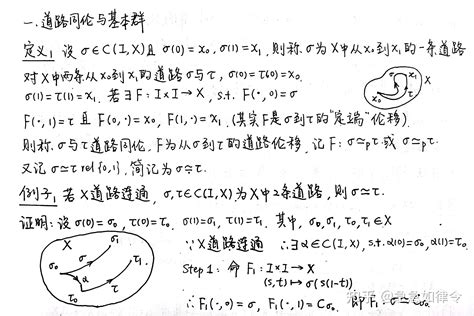 一.道路同伦与基本群
定义1 设 σ∈C(I,X) 且 σ(0)=x₀, σ(1)=x₁, 则称σ为X中从x₀到x₁的一条道路
对X中两条从x₀到x₁的道路σ与τ, σ(0)=τ(0)=x₀.
σ(1)=τ(1)=x₁. 若∃F:I×I→X, s.t. F(·,0)=σ
x₀ σ x₁ τ X
F(·,1)=τ 且 F(0,·)=x₀, F(1,·)=x₁.(其实F是σ到τ的"定端"伦移)
则称 σ与τ道路同伦, F为从σ到τ的道路伦移, 记 F: σ≃pτ 或 σ≃pτ.
又记 σ≃τ rel{0,1}, 简记为 σ≂τ.
例子1 若X道路连通, σ,τ∈C(I,X)为X中2条道路, 则 σ≃τ.
证明: 设 σ(0)=σ₀, τ(0)=τ₀. σ(1)=σ₁, τ(1)=τ₁. 其中, σ₀,σ₁,τ₀,τ₁∈X
X σ₀ σ σ₁ α τ₀ τ τ₁
∵X道路连通 ∴∃α∈C(I,X), s.t. α(0)=σ₀, α(1)=τ₀.
Step 1: 命 F₁: I×I→X
(s,t)↦σ(s(1-t))
∴F₁(·,0)=σ, F₁(·,1)=Cσ₀. 即 F₁: σ≃Cσ₀.